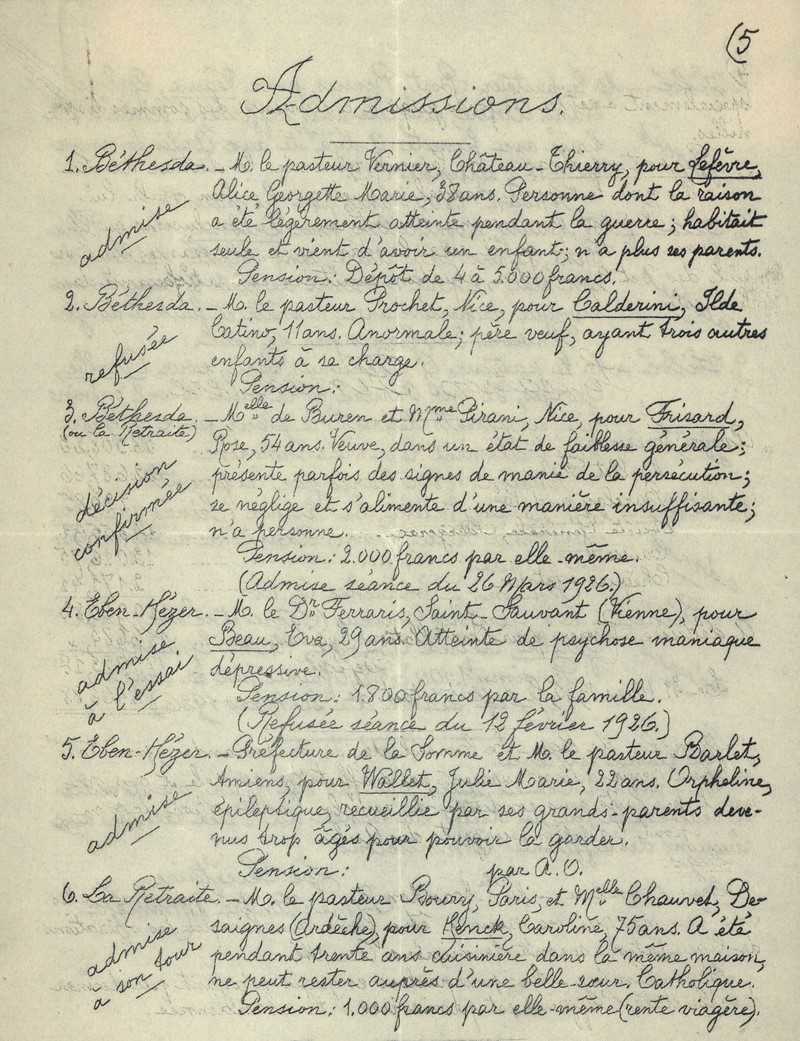 (5
Admissions.
1. Béthesda. _ M. le pasteur Vernier, Château-Thierry, pour Lefèvre,
Alice Georgette Marie, 38 ans. Personne dont la raison
admise
a été légèrement atteinte pendant la guerre; habitait
seule et vient d'avoir un enfant; n'a plus ses parents.
Pension: Dépôt de 4 à 5.000 francs.
2. Béthesda. _ M. le pasteur Prochet, Nice, pour Calderini, Ilde
Catino, 11 ans. Anormale; père veuf, ayant trois autres
refusée
enfants à sa charge.
Pension:
3. Béthesda _ Melle de Buren et Mme Pirani, Nice, pour Frisard,
(ou La Retraite)
Rose, 54 ans. Veuve, dans un état de faiblesse générale;
présente parfois des signes de manie de la persécution;
décision
confirmée
se néglige et s'alimente d'une manière insuffisante;
n'a personne.
Pension: 2.000 francs par elle-même.
(Admise séance du 26 Mars 1926.)
4. Eben-Hézer. _ M. le Dr Ferraris, Saint-Sauvant (Vienne), pour
Beau, Eva, 29 ans. Atteinte de psychose maniaque
admise
à l'essai
dépressive.
Pension: 1.800 francs par la famille.
(Refusée séance du 12 février 1926.)
5. Eben-Hézer. _ Préfecture de la Somme et M. le pasteur Barlet,
Amiens, pour Wallet, Julie Marie, 22 ans. Orpheline,
admise
épileptique, recueillie par ses grands-parents deve-
nus trop âgés pour pouvoir la garder.
Pension: par A.O.
6. La Retraite. _ M. le pasteur Boury, Paris, et Melle Chauvet, De-
saignes (Ardèche), pour Henck, Caroline, 75 ans. A été
admise
à son tour
pendant trente ans cuisinière dans la même maison,
ne peut rester auprès d'une belle-sœur. Catholique.
Pension: 1.000 francs par elle-même (rente viagère).